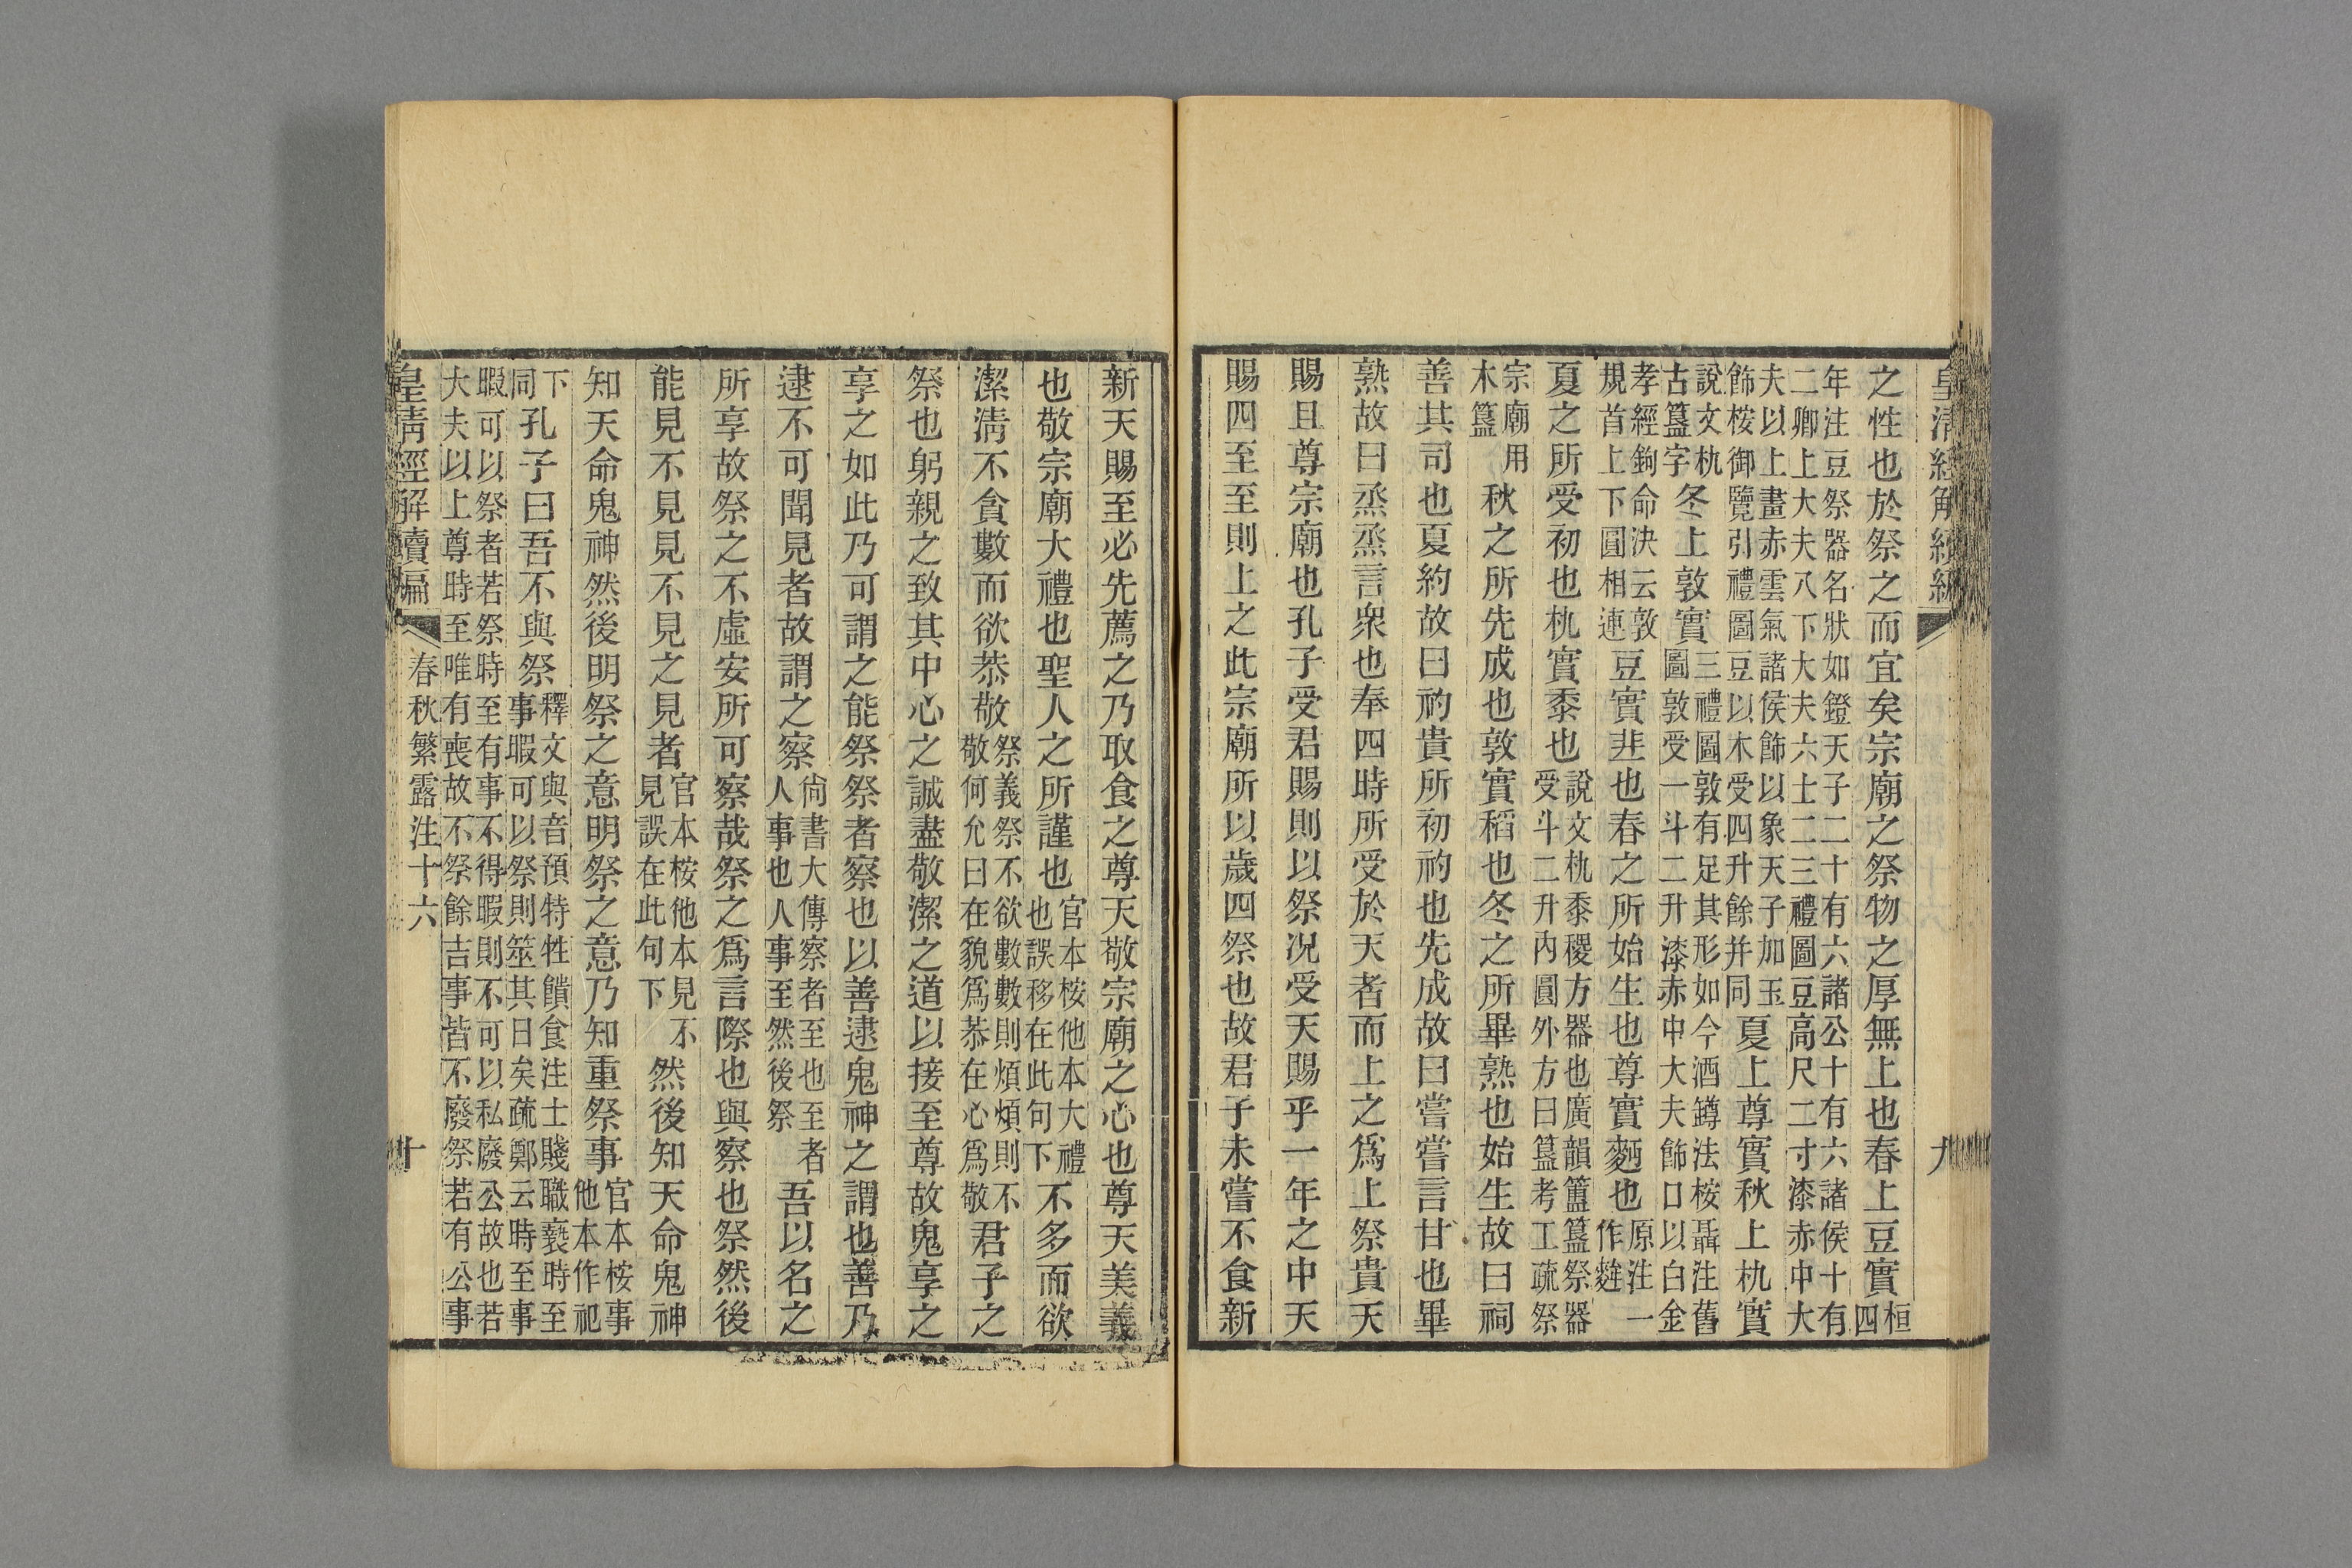 皇清經解續編
九
之性也於祭之而宜矣宗廟之祭物之厚無上也春上豆實桓四
年注豆祭器名狀如鐙天子二十有六諸公十有六諸侯十有
二卿上大夫八下大夫六士二三禮圖豆高尺二寸漆赤中大
夫以上畫赤雲氣諸侯飾以象天子加玉
飾桉御覽引禮圖豆以木受四升餘并同夏上尊實秋上朹實
說文朹
古簋字冬上敦實三禮圖敦有足其形如今酒罇法桉聶注舊
圖敦受一斗二升漆赤中大夫飾口以白金
孝經鉤命決云敦
規首上下圓相連豆實韭也春之所始生也尊實麪也原注一
作麰
夏之所受初也朹實黍也說文朹黍稷方器也廣韻簠簋祭器
受斗二升內圓外方曰簋考工疏祭
宗廟用
木簋秋之所先成也敦實稻也冬之所畢熟也始生故曰祠
善其司也夏約故曰礿貴所初礿也先成故曰嘗嘗言甘也畢
熟故曰烝烝言衆也奉四時所受於天者而上之爲上祭貴天
賜且尊宗廟也孔子受君賜則以祭况受天賜乎一年之中天
賜四至至則上之此宗廟所以歲四祭也故君子未嘗不食新
新天賜至必先薦之乃取食之尊天敬宗廟之心也尊天美義
也敬宗廟大禮也聖人之所謹也官本桉他本大禮
也誤移在此句下不多而欲
潔清不貪數而欲恭敬祭義祭不欲數數則煩煩則不
敬何允曰在貌爲恭在心爲敬君子之
祭也躬親之致其中心之誠盡敬潔之道以接至尊故鬼享之
享之如此乃可謂之能祭祭者察也以善逮鬼神之謂也善乃
逮不可聞見者故謂之察尙書大傳察者至也至者
人事也人事至然後祭吾以名之
所享故祭之不虛安所可察哉祭之爲言際也與察也祭然後
能見不見見不見之見者官本桉他本見不
見誤在此句下然後知天命鬼神
知天命鬼神然後明祭之意明祭之意乃知重祭事官本桉事
他本作祀
下
同孔子曰吾不與祭釋文與音預特牲饋食注士賤職褻時至
事暇可以祭則筮其日矣疏鄭云時至事
暇可以祭者若祭時至有事不得暇則不可以私廢公故也若
大夫以上尊時至唯有喪故不祭餘吉事皆不廢祭若有公事
皇清經解續編
春秋繁露注十六
十